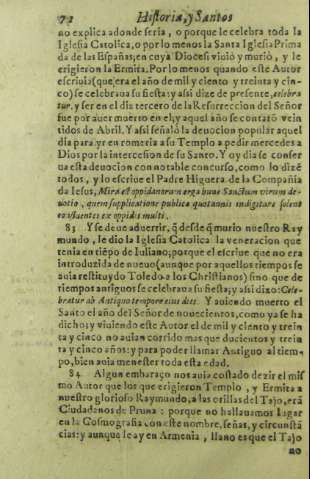 72 Historia, y Santos
no explica adonde seria, o porque le celebra toda la
Iglesia Catolica, o por lo menos la Santa Iglesia Prima
da de las Españas, en cuya Diocesi viuió y murió, y le
erigieron la Ermita. Por lo menos quando este Autor
escriuia (que, era el año de mil y ciento y treinta y cin-
co) se celebraua su fiesta: y assi dize de presente, celebra
tur. y ser en el dia tercero de la Resurreccion del Señor
fue por auer muerto en el; y aquel año se contarõ vein
tidos de Abril. Y assi señaló la deuocion popular aquel
dia para yr en romeria a su Templo a pedir mercedes a
Dios por la intercesion de su Santo. Y oy dia se conser
ua esta deuocion con notable concurso, como lo dizē
todos, y lo escriue el Padre Higuera de la Compañia
de Iesus, Mira est oppidanorum erga hunc Sanctum virum de-
uotio, quem supplicatione publica quotannis indigitare solent
confluentes ex oppidis multi.
83 Y se deue aduertir, q̃ desde q̃ murio nuestro Ray
mundo, le dio la Iglesia Catolica la veneracion que
tenia en tiēpo de Iuliano; porque el escriue que no era
introduzida de nueuo (aunque por aquellos tiempos se
auia restituydo Toledo a los Christianos) sino que de
tiempos antiguos se celebraua su fiesta; y assi dizo: Cele-
bratur ab Antiquo tempore eius dies. Y auiendo muerto el
Santo el año del Señor de nouecientos, como ya se ha
dicho; y viuiendo este Autor el de mil y ciento y trein
ta y cinco no auian corrido mas que ducientos y trein
ta y cinco años: y para poder llamar Antiguo al tiem-
po, bien auia menester toda esta edad.
84 Algun embaraço nos auia costado dezir el mis
mo Autor que los que erigieron Templo, y Ermita a
nuestro glorioso Raymundo, a las orillas del Tajo, erã
Ciudadanos de Pruna: porque no hallauamos lugar
en la Cosmografia con este nombre, señas, y circunstã
cias: y aunque le ay en Armenia, llano es que el Tajo
no